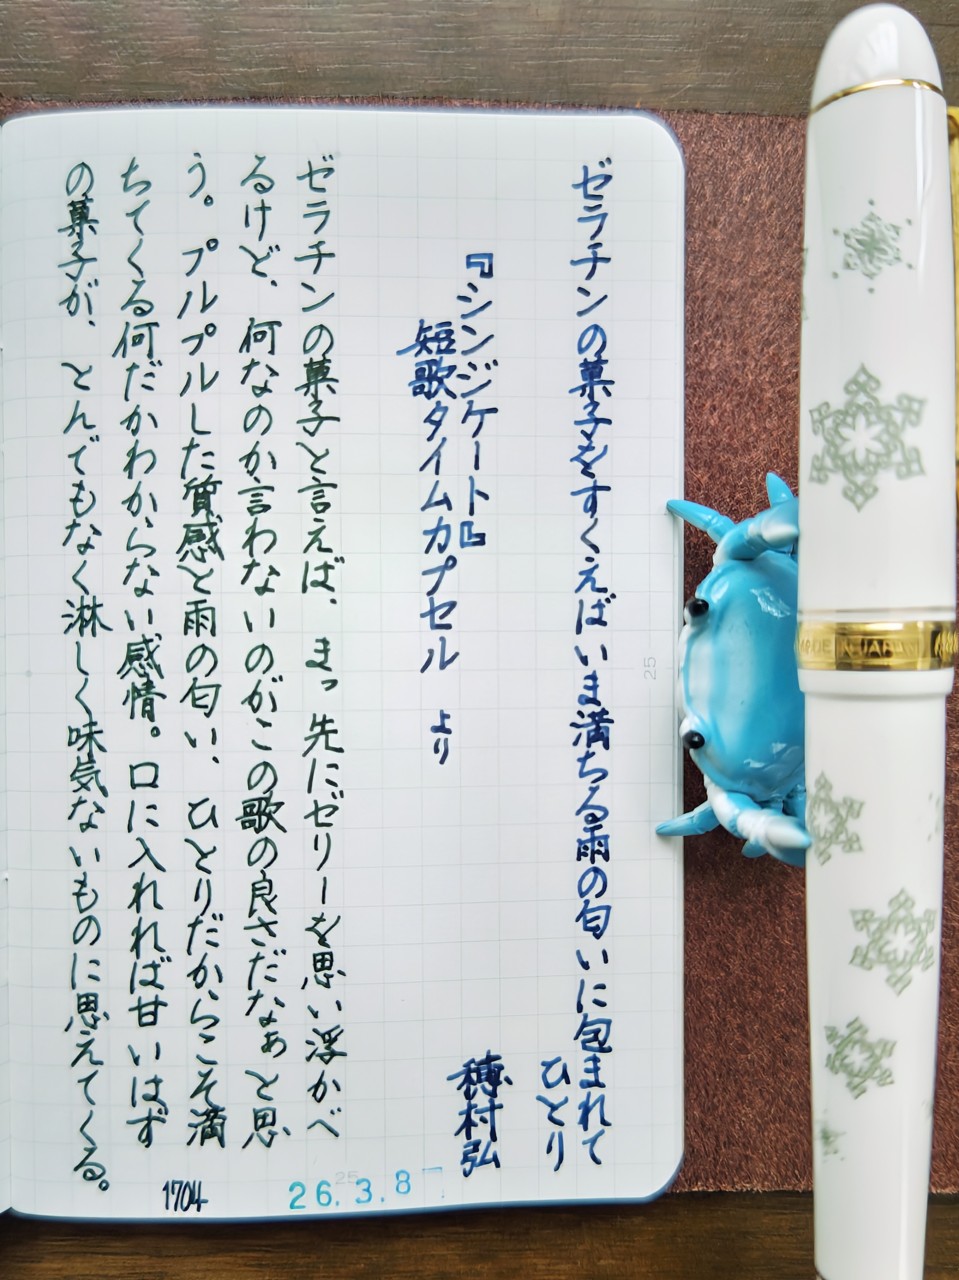 ゼラチンの菓子をすくえばいま満ちる雨の匂いに包まれて
ひとり
穂村弘
『シンジケート』
短歌タイムカプセル より
ゼラチンの菓子と言えば、まっ先にゼリーを思い浮かべ
るけど、何なのか言わないのがこの歌の良さだなぁと思
う。プルプルした質感と雨の匂い、ひとりだからこそ満
ちてくる何だかわからない感情。口に入れれば甘いはず
の菓子が、とんでもなく淋しく味気ないものに思えてくる。
1704
26.3.8
25
25
MADE IN JAPAN